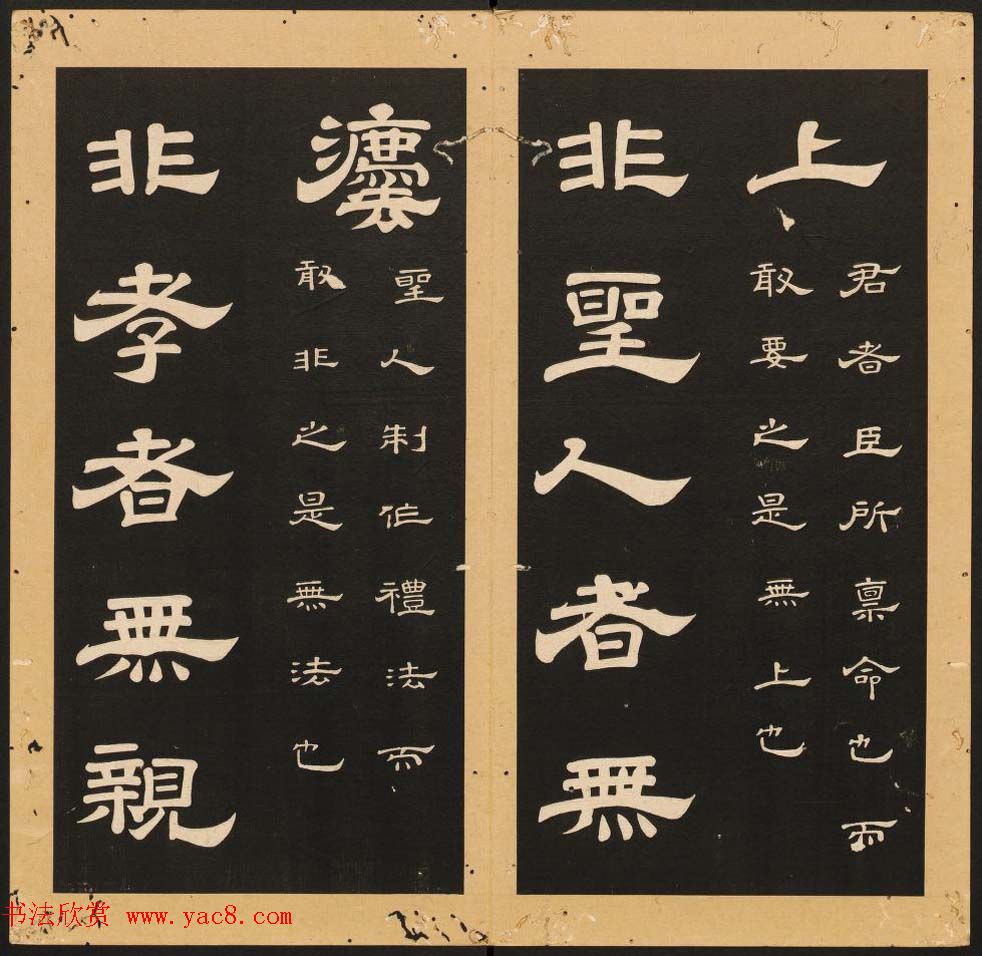 上
君者臣所稟命也而
敢要之是無上也
非聖人者無
灋
聖人制作禮法而
敢非之是無法也
非孝者無親
书法欣赏 www.yac8.com